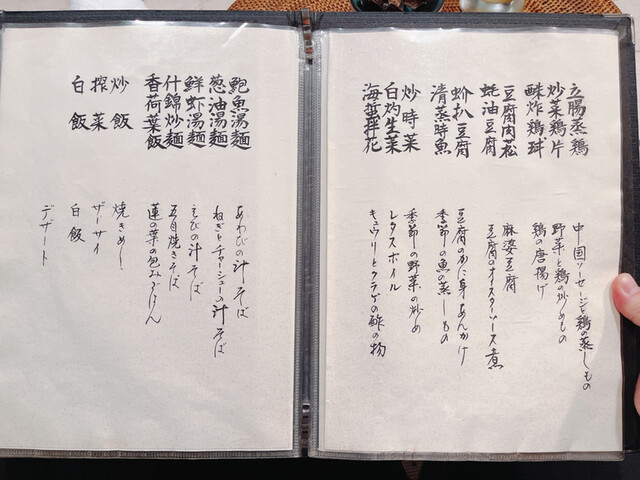 立腸蒸鶏
炒菜鶏片
酥炸鶏球
豆腐肉菘
蚝油豆腐
蚧扒豆腐
清蒸時魚
炒時菜
白灼生菜
海蜇拌花
中国ソーセージと鶏の蒸しもの
野菜と鶏の炒めもの
鶏の唐揚げ
麻婆豆腐
豆腐のオイスターソース煮
豆腐のかに身あんかけ
季節の魚の蒸しもの
季節の野菜の炒め
レタスボイル
キュウリとクラゲの酢の物
鮑魚湯麺
葱油湯麺
鮮蝦湯麺
什錦炒麺
香荷葉飯
炒飯
搾菜
白飯
あわびの汁そば
ねぎとチャーシューの汁そば
えびの汁そば
五目焼きそば
蓮の葉の包みごはん
焼きめし
ザーサイ
白飯
デザート